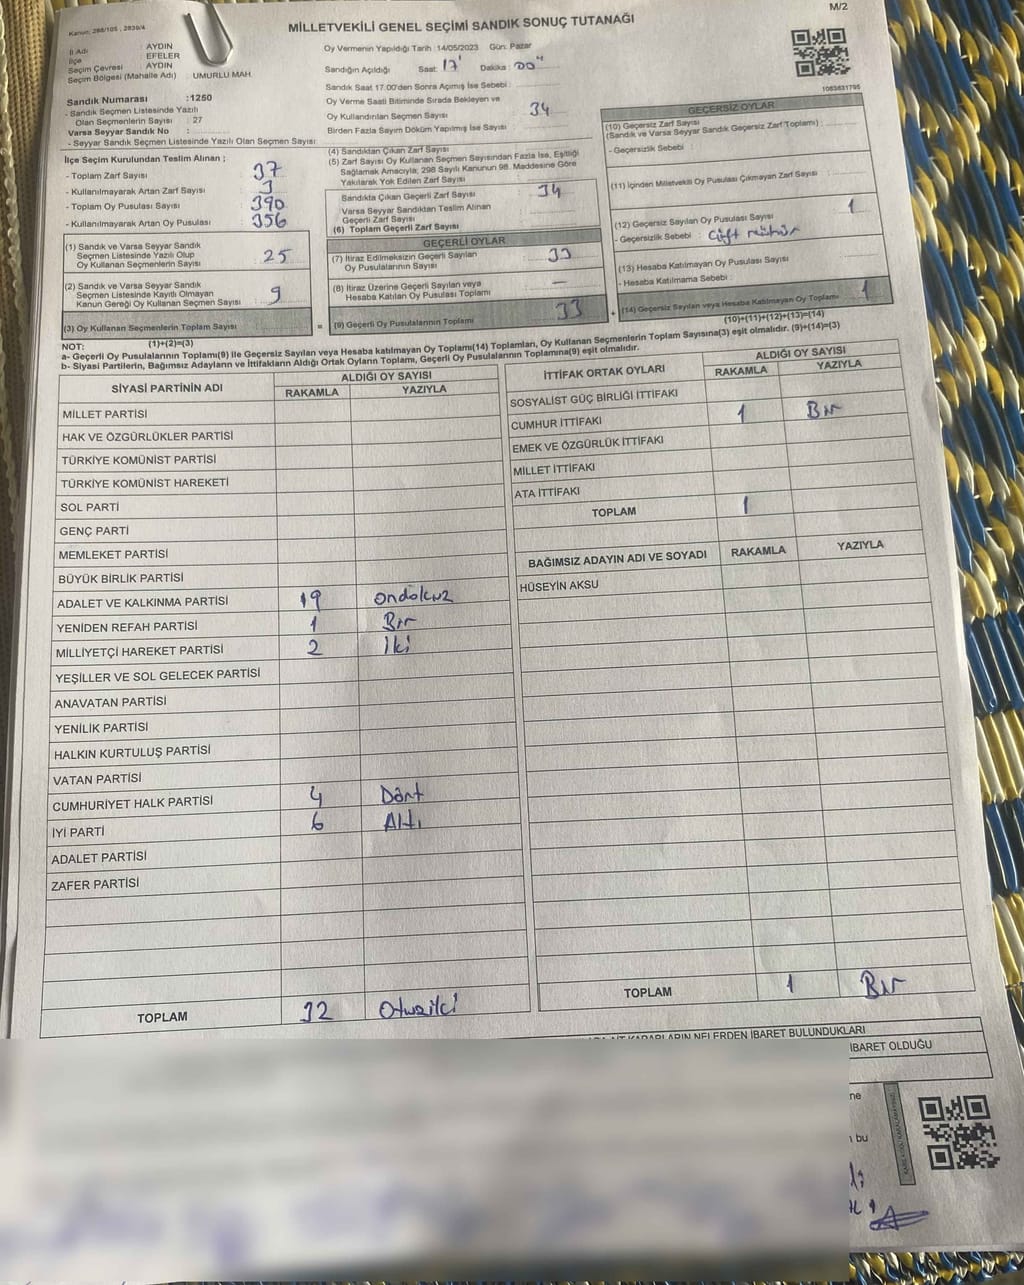 M/2
Kanun: 298/105 , 2839/4
MİLLETVEKİLİ GENEL SEÇİMİ SANDIK SONUÇ TUTANAĞI
İl Adı : AYDIN
İlçe : EFELER
Seçim Çevresi : AYDIN
Seçim Bölgesi (Mahalle Adı) : UMURLU MAH.
Sandık Numarası :1250
- Sandık Seçmen Listesinde Yazılı
Olan Seçmenlerin Sayısı : 27
Varsa Seyyar Sandık No :
- Seyyar Sandık Seçmen Listesinde Yazılı Olan Seçmen Sayısı
Oy Vermenin Yapıldığı Tarih :14/05/2023 Gün: Pazar
Sandığın Açıldığı Saat: 17 Dakika : 00
Sandık Saat 17.00'den Sonra Açımış İse Sebebi :
Oy Verme Saati Bitiminde Sırada Bekleyen ve
Oy Kullandırılan Seçmen Sayısı : 34
Birden Fazla Sayım Döküm Yapılmış İse Sayısı :
1083631795
İlçe Seçim Kurulundan Teslim Alınan ;
- Toplam Zarf Sayısı 37
- Kullanılmayarak Artan Zarf Sayısı 3
- Toplam Oy Pusulası Sayısı 390
- Kullanılmayarak Artan Oy Pusulası 356
(1) Sandık ve Varsa Seyyar Sandık
Seçmen Listesinde Yazılı Olup
Oy Kullanan Seçmenlerin Sayısı 25
(2) Sandık ve Varsa Seyyar Sandık
Seçmen Listesinde Kayıtlı Olmayan
Kanun Gereği Oy Kullanan Seçmen Sayısı 9
(3) Oy Kullanan Seçmenlerin Toplam Sayısı
(1)+(2)=(3)
(4) Sandıktan Çıkan Zarf Sayısı
(5) Zarf Sayısı Oy Kullanan Seçmen Sayısından Fazla İse, Eşitliği
Sağlamak Amacıyla, 298 Sayılı Kanunun 98. Maddesine Göre
Yakılarak Yok Edilen Zarf Sayısı
Sandıkta Çıkan Geçerli Zarf Sayısı 34
Varsa Seyyar Sandıktan Teslim Alınan
Geçerli Zarf Sayısı
(6) Toplam Geçerli Zarf Sayısı
GEÇERLİ OYLAR
(7) İtiraz Edilmeksizin Geçerli Sayılan
Oy Pusulalarının Sayısı 33
(8) İtiraz Üzerine Geçerli Sayılan veya
Hesaba Katılan Oy Pusulası Toplamı —
= (9) Geçerli Oy Pusulalarının Toplamı 33
GEÇERSİZ OYLAR
(10) Geçersiz Zarf Sayısı
(Sandık ve Varsa Seyyar Sandık Geçersiz Zarf Toplamı) :
- Geçersizlik Sebebi :
(11) İçinden Milletvekili Oy Pusulası Çıkmayan Zarf Sayısı :
(12) Geçersiz Sayılan Oy Pusulası Sayısı 1
- Geçersizlik Sebebi : Çift mühür
(13) Hesaba Katılmayan Oy Pusulası Sayısı
- Hesaba Katılmama Sebebi :
+ (14) Geçersiz Sayılan veya Hesaba Katılmayan Oy Toplamı 1
(10)+(11)+(12)+(13)=(14)
NOT:
a- Geçerli Oy Pusulalarının Toplamı(9) ile Geçersiz Sayılan veya Hesaba katılmayan Oy Toplamı(14) Toplamları, Oy Kullanan Seçmenlerin Toplam Sayısına(3) eşit olmalıdır. (9)+(14)=(3)
b- Siyasi Partilerin, Bağımsız Adayların ve İttifakların Aldığı Ortak Oyların Toplamı, Geçerli Oy Pusulalarının Toplamına(9) eşit olmalıdır.
SİYASİ PARTİNİN ADI
ALDIĞI OY SAYISI
RAKAMLA YAZIYLA
MİLLET PARTİSİ
HAK VE ÖZGÜRLÜKLER PARTİSİ
TÜRKİYE KOMÜNİST PARTİSİ
TÜRKİYE KOMÜNİST HAREKETİ
SOL PARTİ
GENÇ PARTİ
MEMLEKET PARTİSİ
BÜYÜK BİRLİK PARTİSİ
ADALET VE KALKINMA PARTİSİ 19 ondokuz
YENİDEN REFAH PARTİSİ 1 Bir
MİLLİYETÇİ HAREKET PARTİSİ 2 iki
YEŞİLLER VE SOL GELECEK PARTİSİ
ANAVATAN PARTİSİ
YENİLİK PARTİSİ
HALKIN KURTULUŞ PARTİSİ
VATAN PARTİSİ
CUMHURİYET HALK PARTİSİ 4 Dört
İYİ PARTİ 6 Altı
ADALET PARTİSİ
ZAFER PARTİSİ
TOPLAM 32 Otuziki
İTTİFAK ORTAK OYLARI
ALDIĞI OY SAYISI
RAKAMLA YAZIYLA
SOSYALİST GÜÇ BİRLİĞİ İTTİFAKI
CUMHUR İTTİFAKI 1 Bir
EMEK VE ÖZGÜRLÜK İTTİFAKI
MİLLET İTTİFAKI
ATA İTTİFAKI
TOPLAM 1
BAĞIMSIZ ADAYIN ADI VE SOYADI RAKAMLA YAZIYLA
HÜSEYİN AKSU
TOPLAM 1 Bir
NELERDEN İBARET BULUNDUKLARI
İBARET OLDUĞU
bu